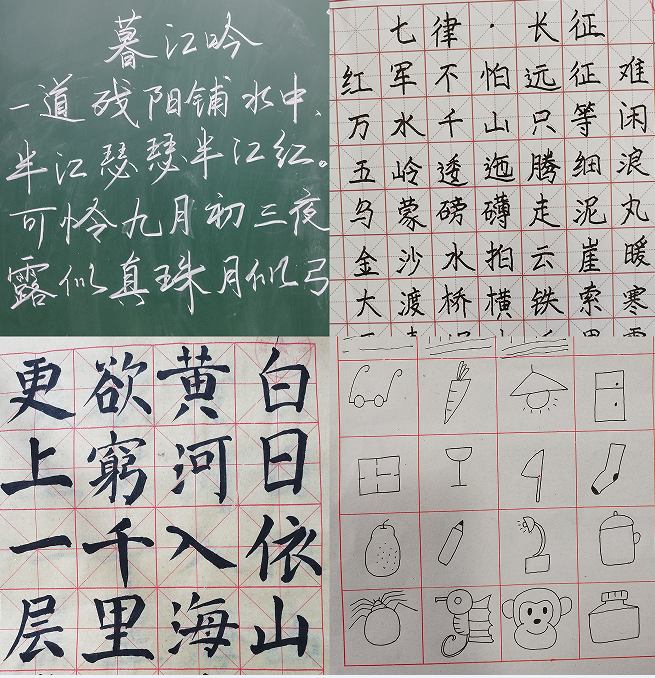 暮江吟
一道残阳铺水中、
半江瑟瑟半江红。
可怜九月初三夜
露似真珠月似弓
七律·长征
红军不怕远征难
万水千山只等闲
五岭逶迤腾细浪
乌蒙磅礴走泥丸
金沙水拍云崖暖
大渡桥横铁索寒
白日依山
黄河入海
欲窮千里
更上一层